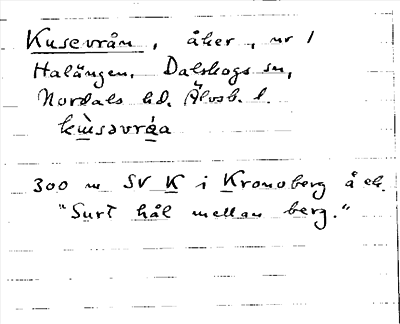 Kusevrån, åker, nr 1
Halängen, Dalskogs sn,
Nordals hd. Älvsb. l.
kùsəvrá̱a
300 m SV K i Kronoberg å ek.
"Surt hål mellan berg."